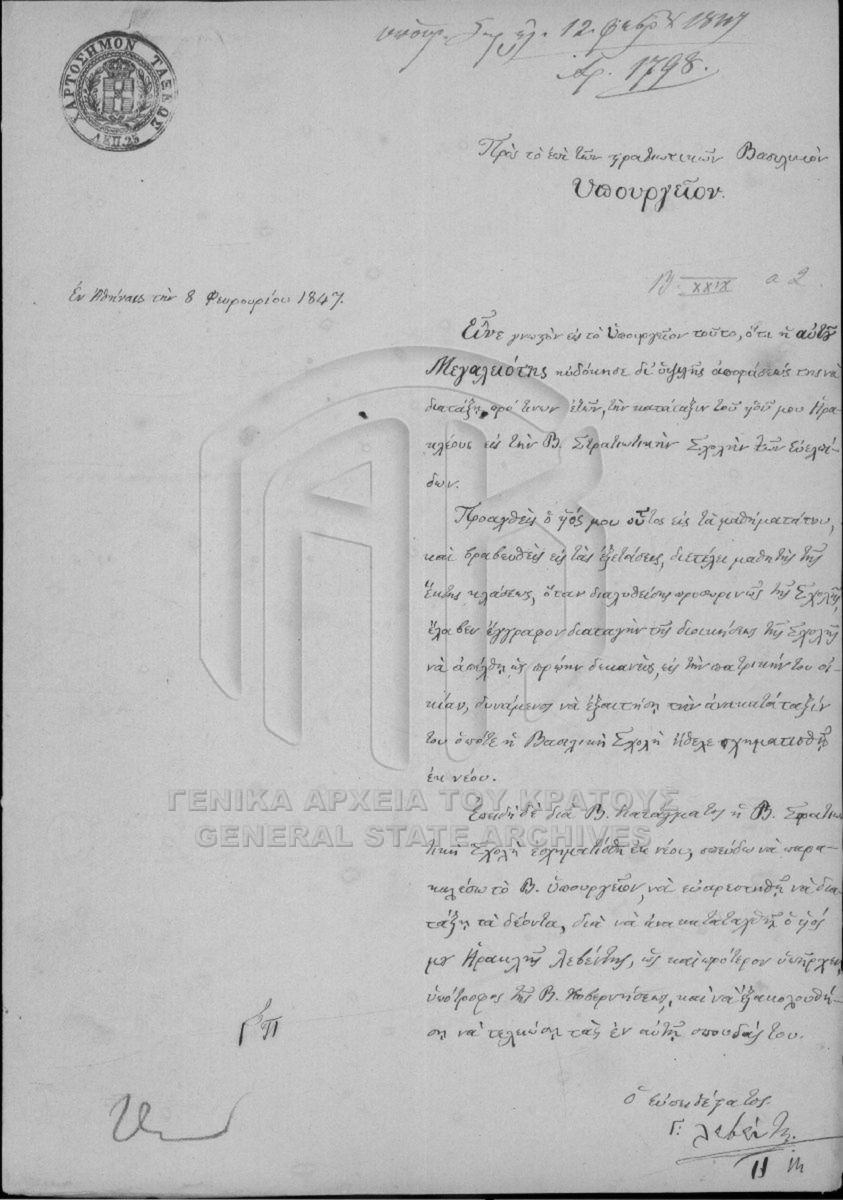 ΧΑΡΤΟΣΗΜΟΝ ΤΑΞΕΩΣ
ΛΕΠ. 25
12 φεβρ 1847
Αρ. 1798.
Πρὸς τὸ ἐπὶ τῶν στρατιωτικῶν Βασιλικὸν
Υπουργεῖον.
B. XXIX a 2
Ἐν Ἀθήναις τὴν 8 Φευρουρίου 1847.
Εἶνε γνωστὸν εἰς τὸ Ὑπουργεῖον τοῦτο, ὅτι ἡ αὐτοῦ
Μεγαλειότης ηὐδόκησε δι' ὑψηλῆς ἀποφάσεώς της νὰ
διατάξῃ πρό τινων ἐτῶν, τὴν κατάταξιν τοῦ υἱοῦ μου Ηρα-
κλέους εἰς τὴν Β. Στρατιωτικὴν Σχολὴν τῶν Εὐελπί-
δων.
Προαχθεὶς ὁ υἱός μου οὗτος εἰς τὰ μαθήματά του,
καὶ βραβευθεὶς εἰς τὰς ἐξετάσεις, διετέλει μαθητὴς τῆς
ἕκτης κλάσεως, ὅταν διαλυθείσης προσωρινῶς τῆς Σχολῆς,
ἔλαβεν ἔγγραφον διαταγὴν τῆς διοικήσεως τῆς Σχολῆς
νὰ ἀπέλθῃ ὡς πρώην δεκανεὺς, εἰς τὴν πατρικήν του οἰ-
κίαν, δυνάμενος νὰ ἐξαιτήσῃ τὴν ἀνακατάταξίν
του ὁπότε ἡ Βασιλικὴ Σχολὴ ἤθελε σχηματισθῆ
ἐκ νέου.
Ἐπειδὴ δὲ διὰ Β. Διατάγματος ἡ Β. Στρατιω-
τικὴ Σχολὴ ἐσχηματίσθη ἐκ νέου, σπεύδω νὰ παρα-
καλέσω τὸ Β. Ὑπουργεῖον, νὰ εὐαρεστηθῇ νὰ δια-
τάξῃ τὰ δέοντα, διὰ νὰ ἀνακαταταχθῇ ὁ υἱός
μου Ηρακλῆς Λεβέντης, ὡς καὶ πρότερον ὑπῆρχεν,
ὑπότροφος τῆς Β. Κυβερνήσεως, καὶ νὰ ἐξακολουθή-
σῃ νὰ τελειώσῃ τὰς ἐν αὐτῇ σπουδάς του.
Ὁ εὐπειθέστατος
Γ: Λεβέντης.
ΓΕΝΙΚΑ ΑΡΧΕΙΑ ΤΟΥ ΚΡΑΤΟΥΣ
GENERAL STATE ARCHIVES